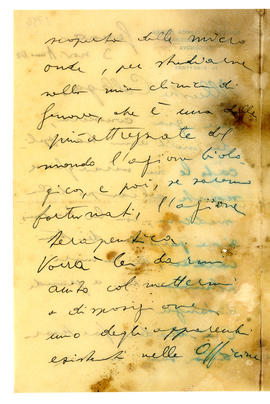 scoperta delle micro
onde, per studiarne
nella mia clinica di
Genova, che è una delle
più attrezzate del
mondo l'azione biolo
gica, e poi, se saremo
fortunati, l'azione
terapeutica.
Vorrà Ella darmi
aiuto col mettermi
a disposizione
uno degli apparecchi
esistenti nelle Officine